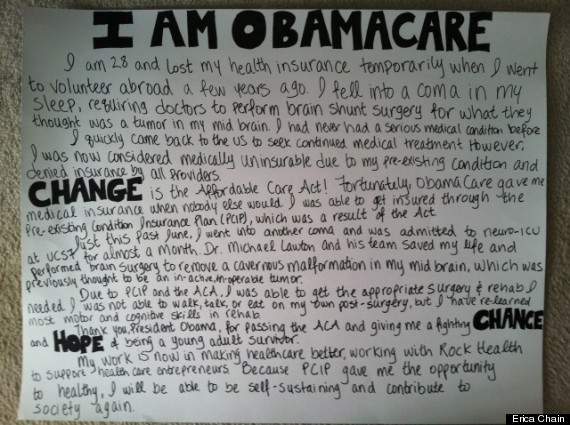 I AM OBAMACARE
I am 28 and lost my health insurance temporarily when I went
to volunteer abroad a few years ago. I fell into a coma in my
sleep, requiring doctors to perform brain shunt surgery for what they
thought was a tumor in my mid brain. I had never had a serious medical condition before
I quickly came back to the US to seek continued medical treatment. However,
I was now considered medically uninsurable due to my pre-existing condition and
denied insurance by all providers.
CHANGE is the Affordable Care Act! Fortunately, ObamaCare gave me
medical insurance when nobody else would. I was able to get insured through the
Pre-existing Condition Insurance Plan (PCIP), which was a result of the Act.
Just this past June, I went into another coma and was admitted to neuro-ICU
at UCSF for almost a month. Dr. Michael Lawton and his team saved my life and
performed brain surgery to remove a cavernous malformation in my mid brain, which was
previously thought to be an in-active, in-operable tumor.
Due to PCIP and the ACA, I was able to get the appropriate surgery & rehab I
needed. I was not able to walk, talk, or eat on my own post-surgery, but I have re-learned
most motor and cognitive skills in rehab.
Thank you, President Obama, for passing the ACA and giving me a fighting CHANCE
and HOPE @ being a young adult survivor.
My work is now in making healthcare better, working with Rock Health
to support healthcare entrepreneurs. Because PCIP gave me the opportunity
to healthy, I will be able to be self-sustaining and contribute to
society again.
Erica Chain